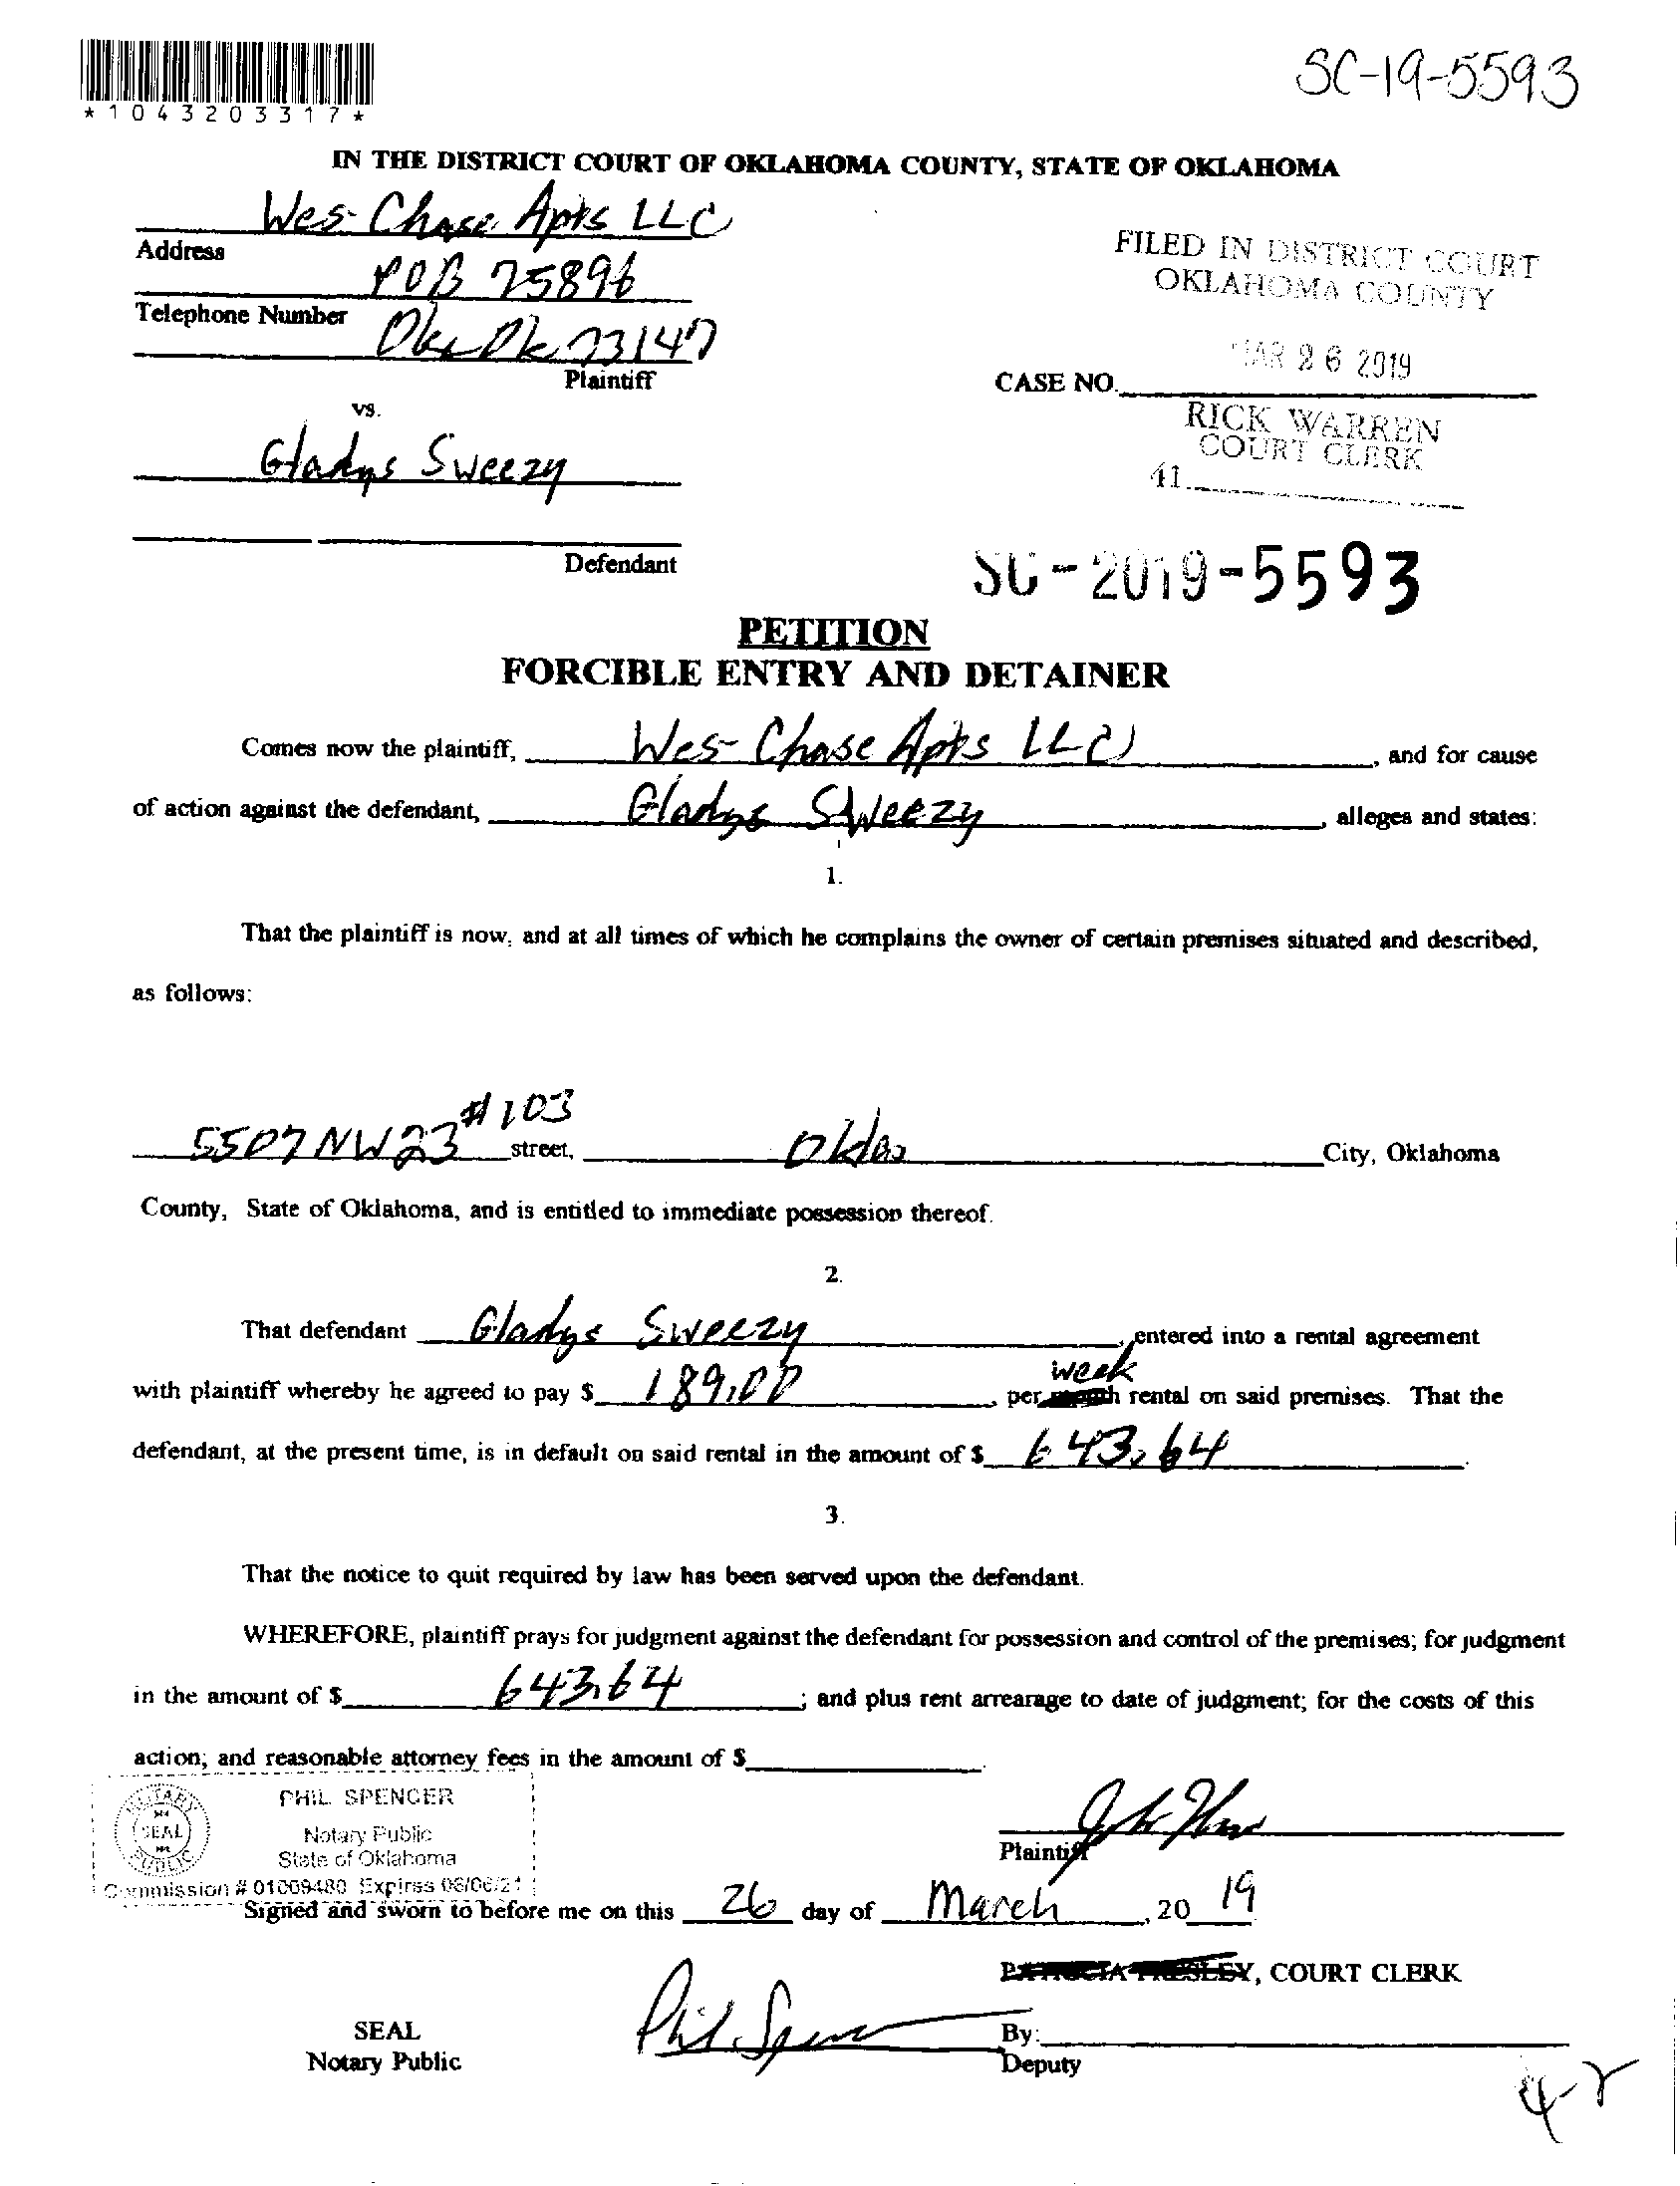 *1043203317*
SC-19-5593
IN THE DISTRICT COURT OF OKLAHOMA COUNTY, STATE OF OKLAHOMA
Wes-Chase Apts LLC
Address
POB 75896
Telephone Number
Okc Ok 73147
Plaintiff
vs.
Gladys Sweezy
Defendant
FILED IN DISTRICT COURT
OKLAHOMA COUNTY
MAR 26 2019
CASE NO.
RICK WARREN
COURT CLERK
41
SC-2019-5593
PETITION
FORCIBLE ENTRY AND DETAINER
Comes now the plaintiff, Wes-Chase Apts LLC, and for cause
of action against the defendant, Gladys Sweezy, alleges and states:
1.
That the plaintiff is now, and at all times of which he complains the owner of certain premises situated and described,
as follows:
5507 NW 23 #103 street, Okla City, Oklahoma
County, State of Oklahoma, and is entitled to immediate possession thereof.
2.
That defendant Gladys Sweezy, entered into a rental agreement
week
with plaintiff whereby he agreed to pay $ 189.00, per month rental on said premises. That the
defendant, at the present time, is in default on said rental in the amount of $ 643.64.
3.
That the notice to quit required by law has been served upon the defendant.
WHEREFORE, plaintiff prays for judgment against the defendant for possession and control of the premises; for judgment
in the amount of $ 643.64; and plus rent arrearage to date of judgment; for the costs of this
action; and reasonable attorney fees in the amount of $
NOTARY PUBLIC
SEAL
PHIL SPENCER
Notary Public
State of Oklahoma
Commission # 01009480 Expires 08/06/21
Plaintiff
Signed and sworn to before me on this 26 day of March, 20 19
PATRICIA PRESLEY, COURT CLERK
SEAL
Notary Public
Phil Spencer
By:
Deputy
4-2